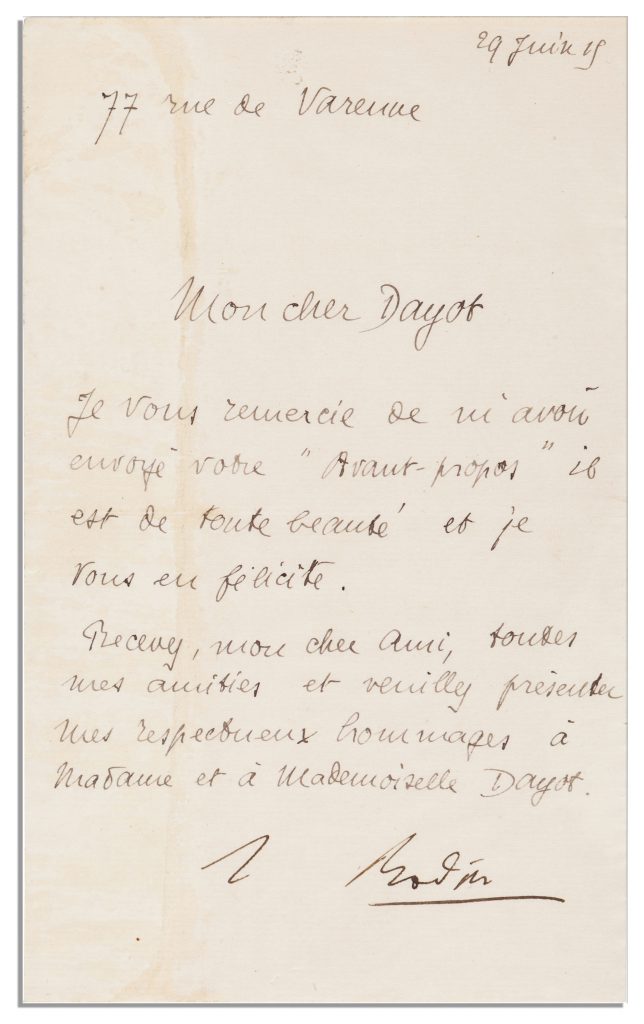 29 Juin 15
77 rue de Varenne
Mon cher Dayot
Je vous remercie de m'avoir
envoyé votre "Avant-propos" il
est de toute beauté et je
vous en félicite.
Recevez, mon cher ami, toutes
mes amitiés et veuillez présenter
mes respectueux hommages à
Madame et à Mademoiselle Dayot.
Rodin